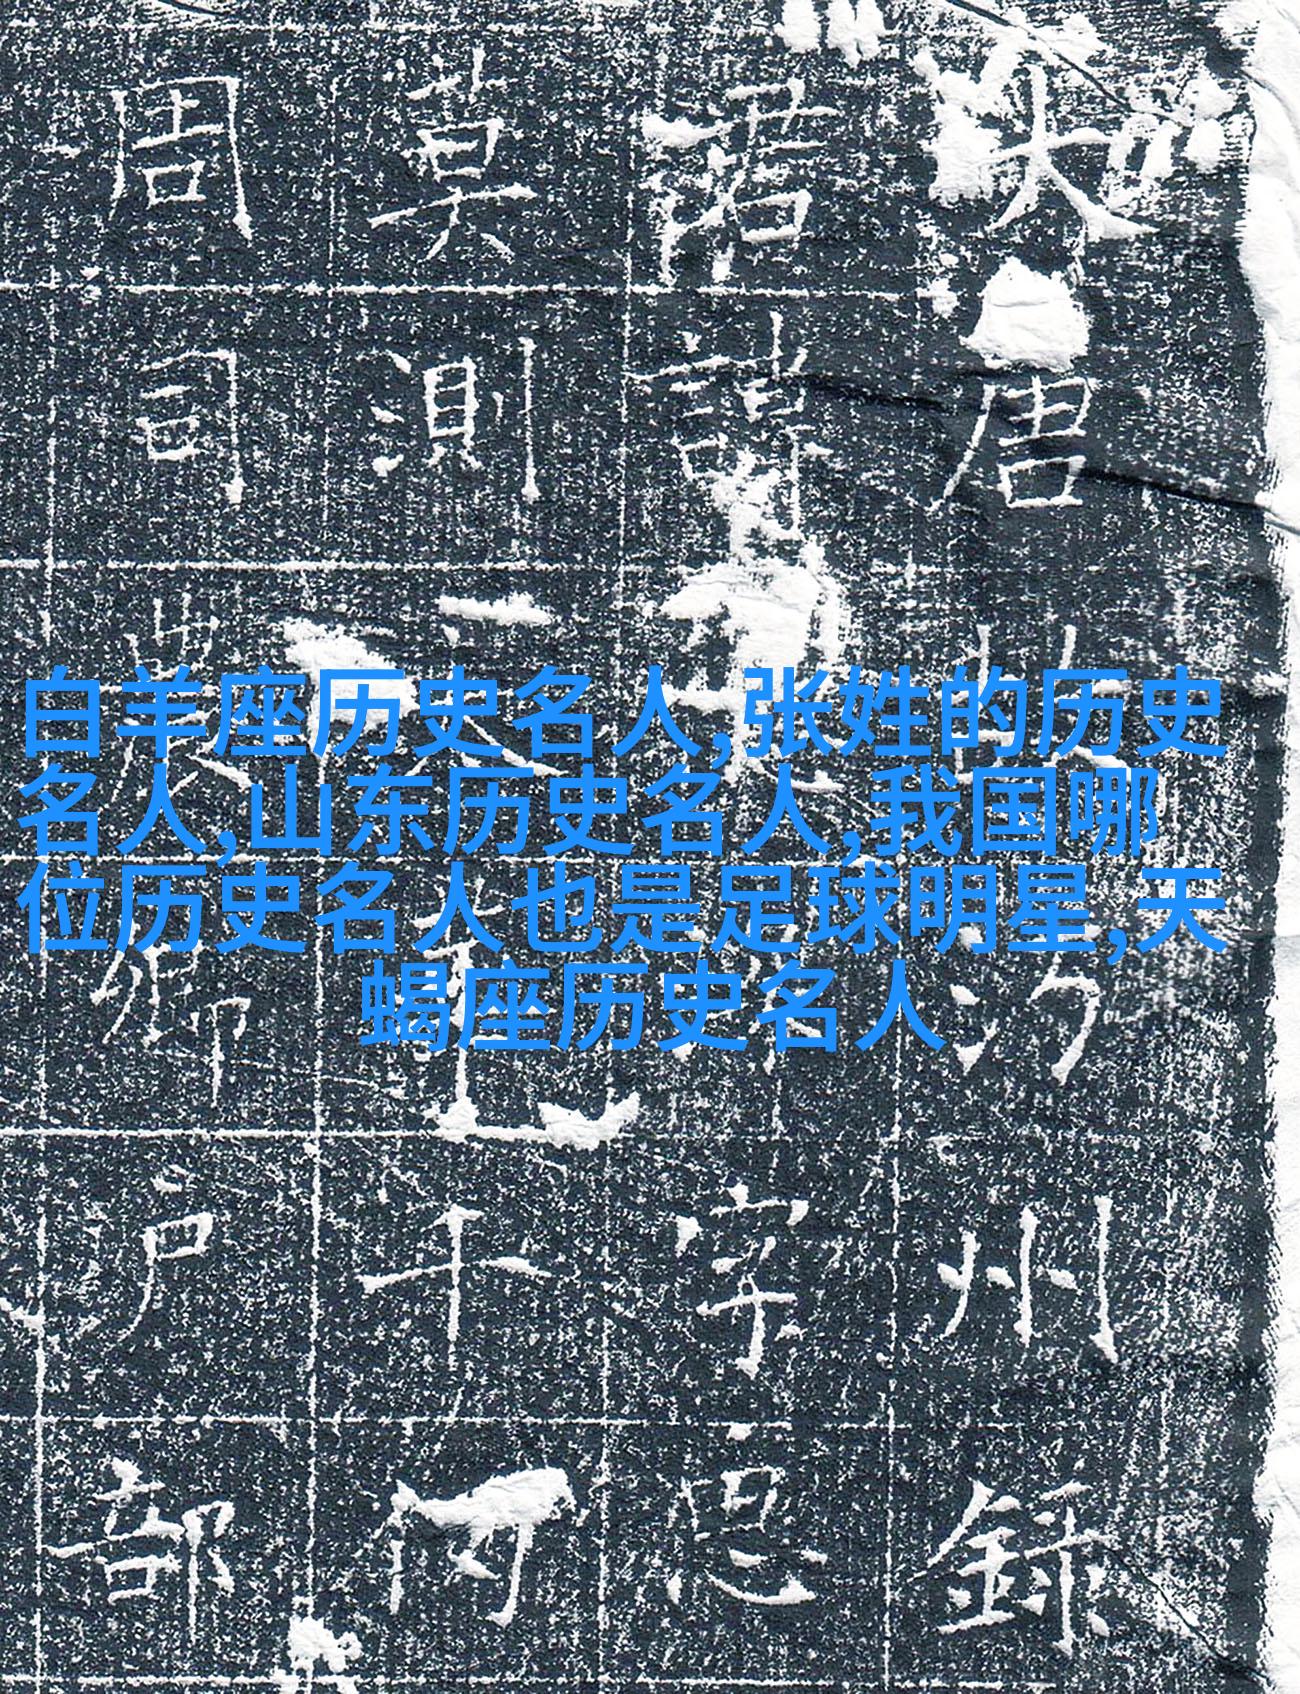 白羊座历史名人,张姓的历史
名人,山东历史名人,我国哪
位历史名人也是足球明星,天
蝎座历史名人
大唐故汾州錄
君諱字
莫測
周司農卿戶部